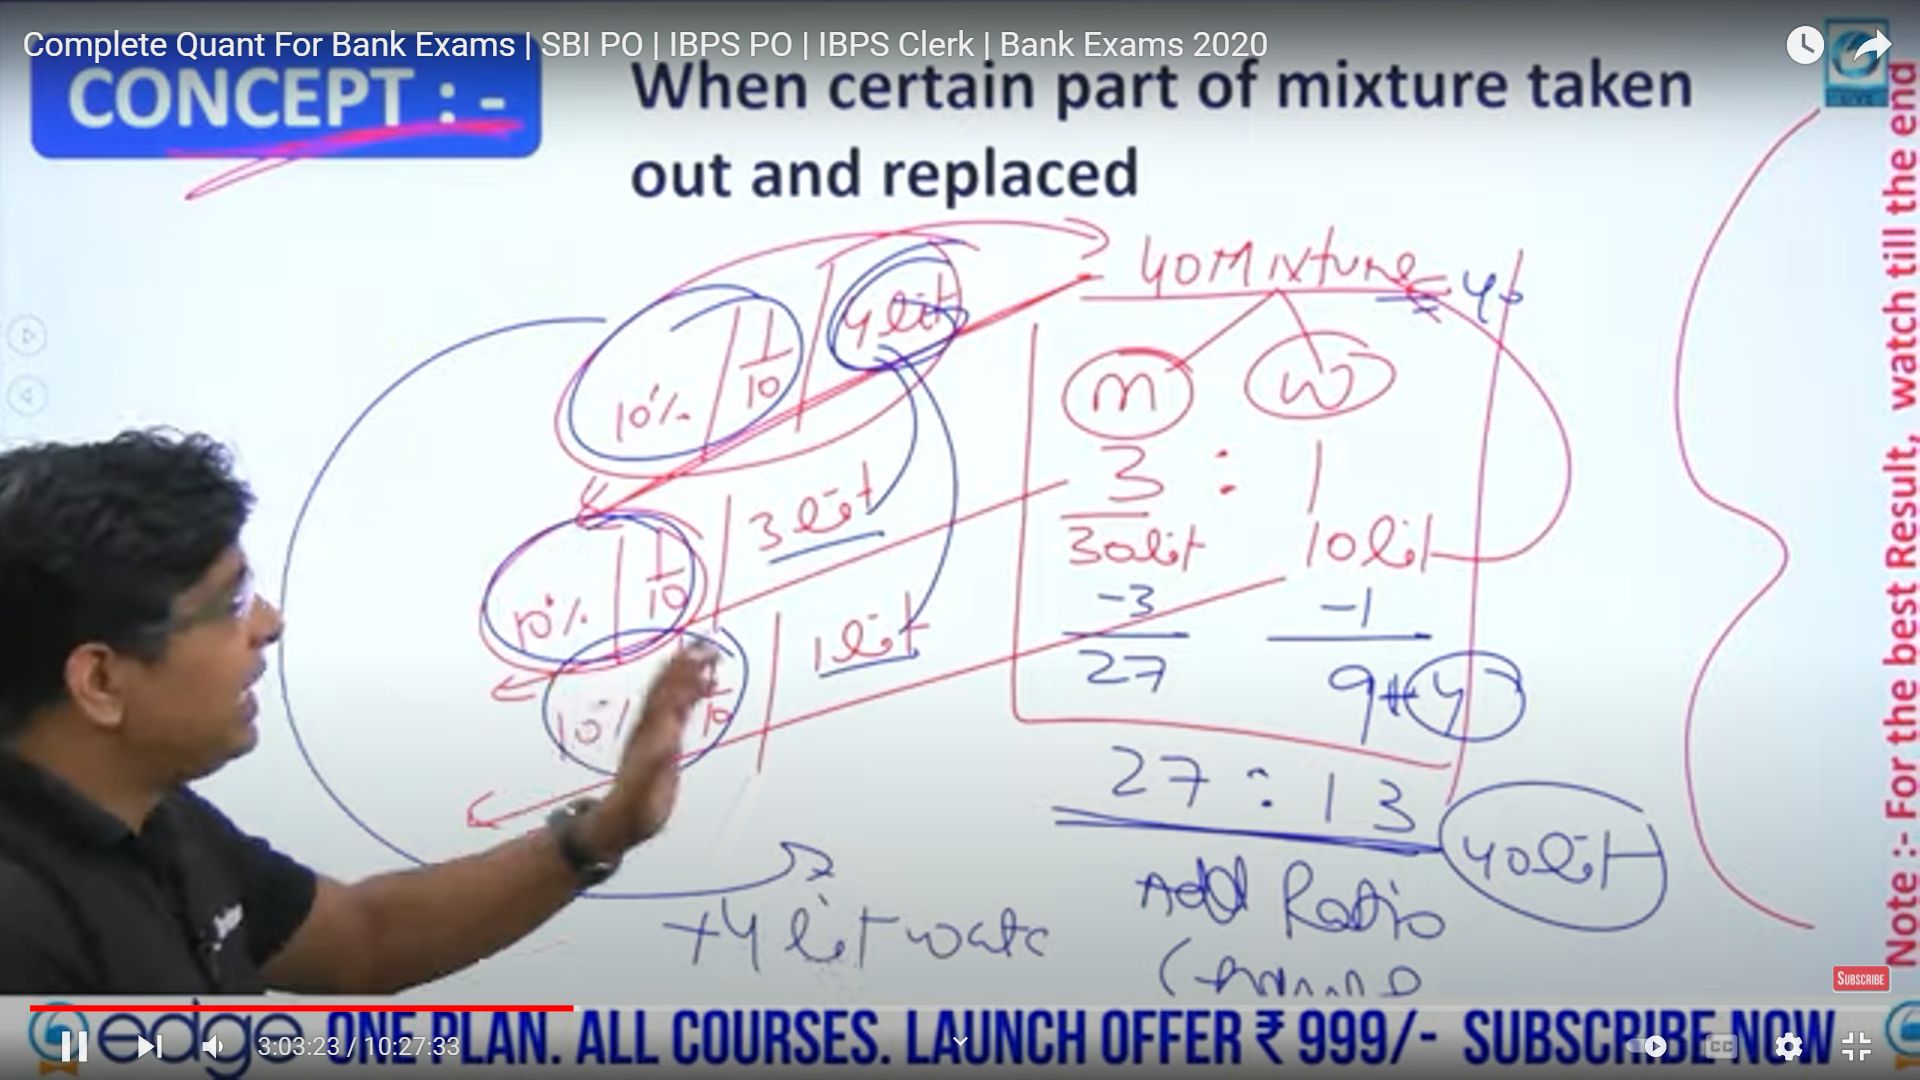 Complete Quant For Bank Exams | SBI PO | IBPS PO | IBPS Clerk | Bank Exams 2020
CONCEPT : -
When certain part of mixture taken
out and replaced
40 Mixture
10% | 1/10 | 4 lit
m w
3 : 1
10% | 1/10 | 3 lit
30 lit 10 lit
-3 -1
1 lit
27 9 + 4
27 : 13
40 lit
Add Ratio
+4 lit
Note :- For the best Result, watch till the end
LIVE
SUBSCRIBE
edge ONE PLAN. ALL COURSES. LAUNCH OFFER ₹ 999/- SUBSCRIBE NOW
3:03:23 / 10:27:33
CC